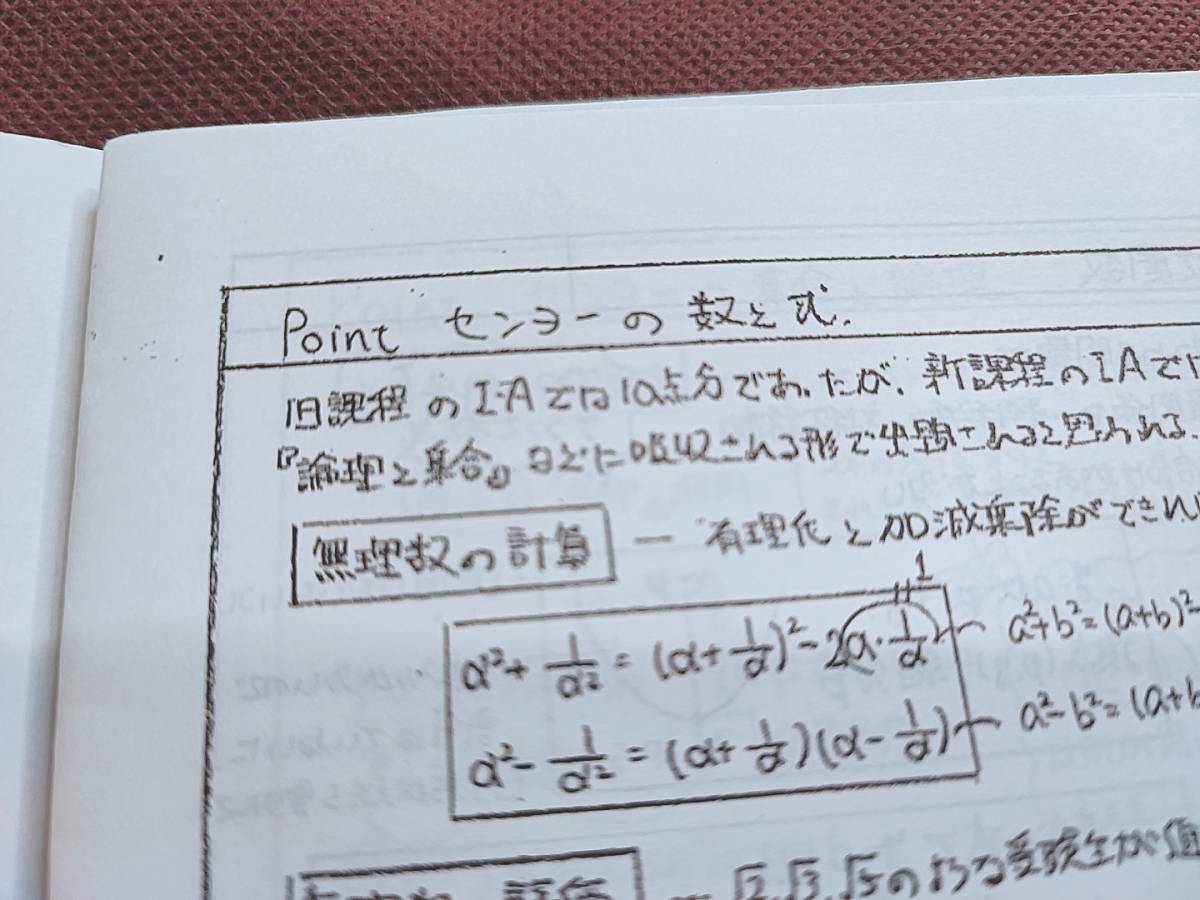 Point センターの 数と式.
旧課程 の I・Aでは 10点分であったが、新課程のIAでは
『論理と集合』などに吸収される形で出題されると思われる.
無理数の計算 ー 有理化と加減乗除ができれ
1
α²+1/α² = (α+1/α)²-2α・1/α ー a²+b²=(a+b)²
α²-1/α² = (α+1/α)(α-1/α) ー a²-b²=(a+b
ー √2,√3,√5のような受験生が値